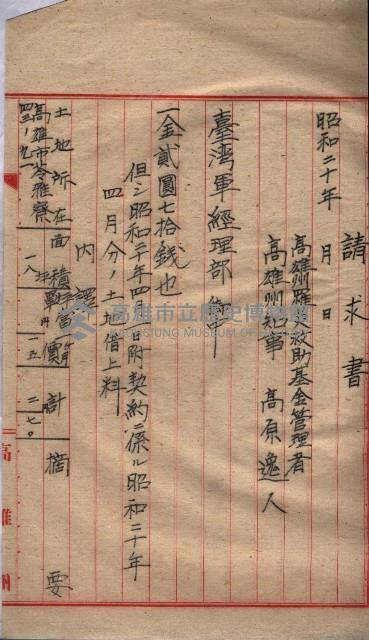 請求書
昭和二十年 月 日
高雄州罹災救助基金管理者
高雄州知事 高原逸人
臺湾軍經理部 御中
一金貳圓七拾錢也
但シ昭和二十年四月 日附契約ニ係ル昭和二十年
四月分ノ土地借上料
内譯
土地所在 面積 坪當單價 計 摘要
高雄市苓雅寮
一八坪 一五 二七〇
高雄州
高雄市立歷史博物館